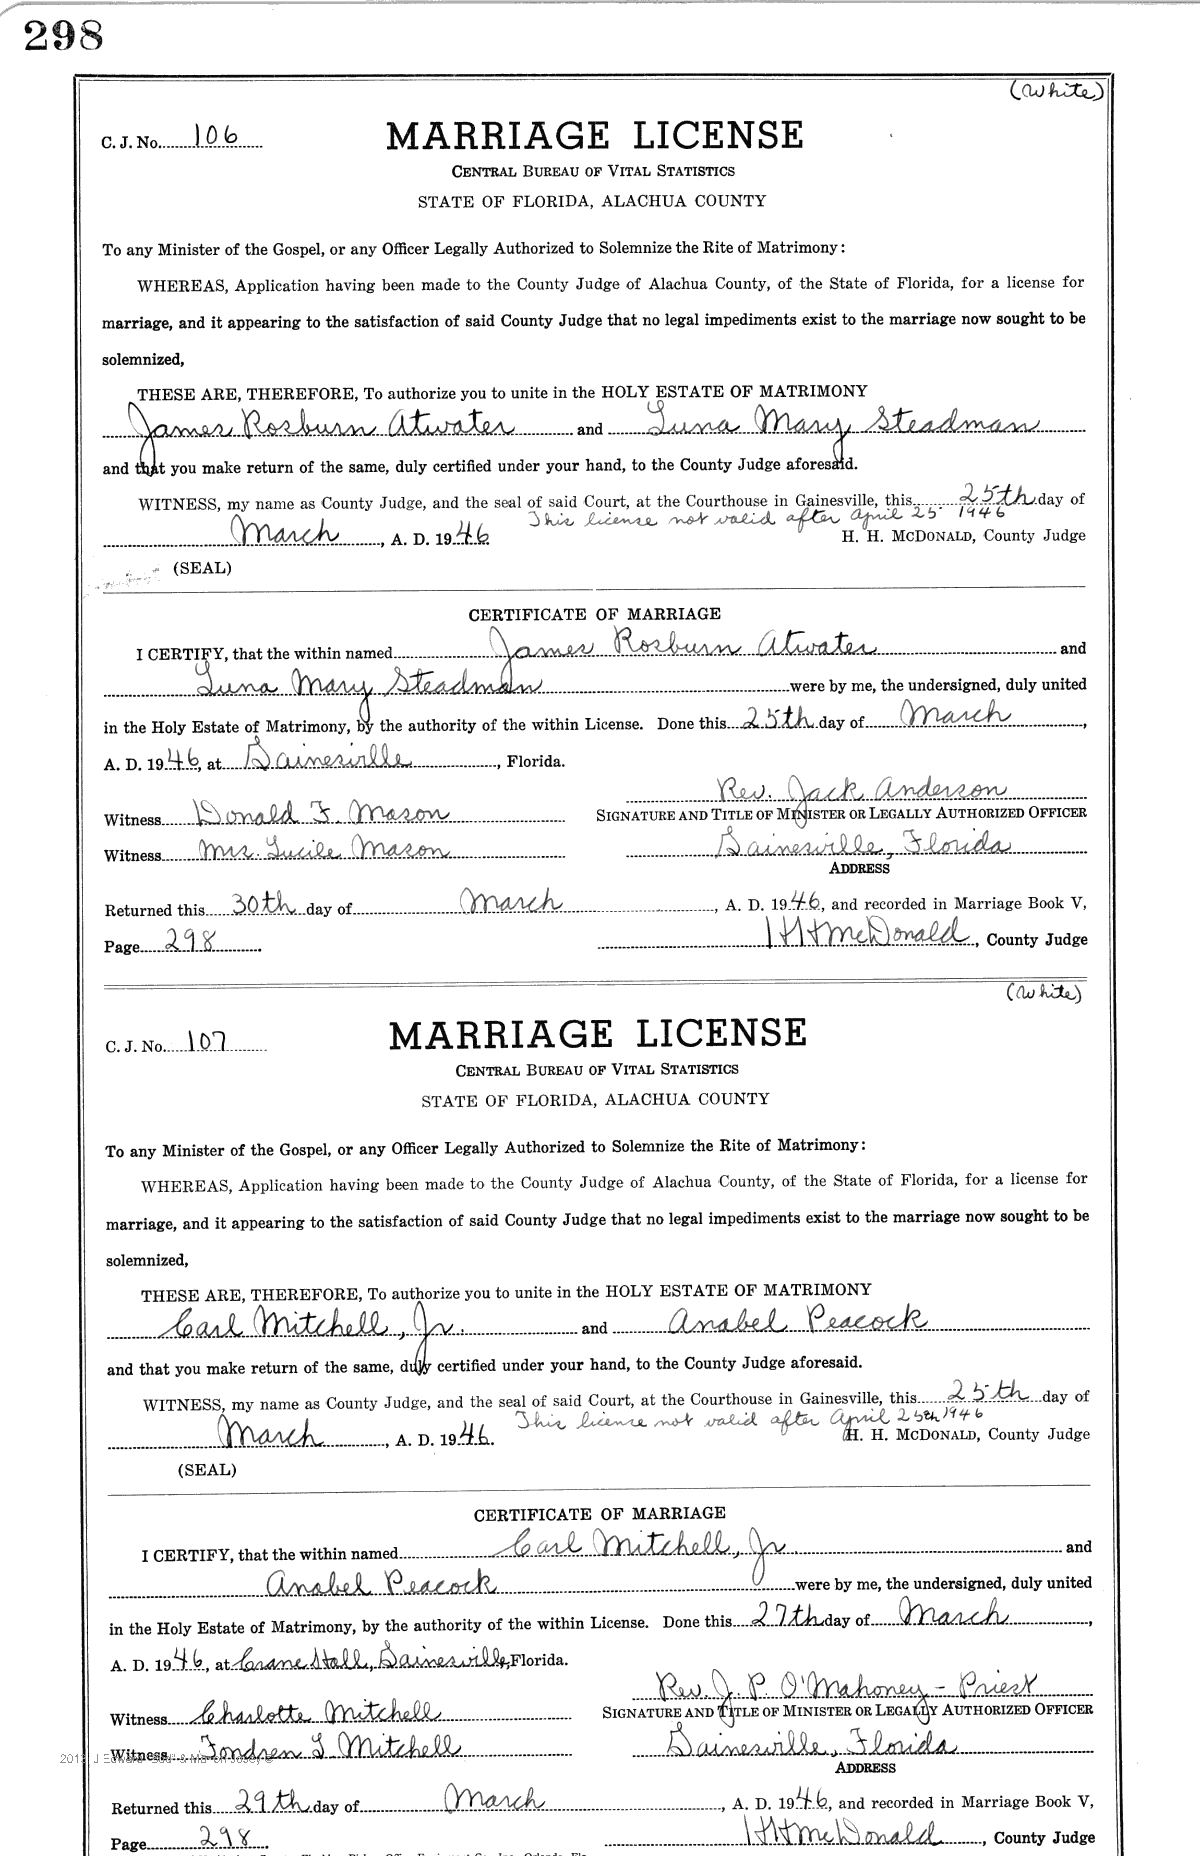 298
(White)
C. J. No. 106
MARRIAGE LICENSE
CENTRAL BUREAU OF VITAL STATISTICS
STATE OF FLORIDA, ALACHUA COUNTY
To any Minister of the Gospel, or any Officer Legally Authorized to Solemnize the Rite of Matrimony:
WHEREAS, Application having been made to the County Judge of Alachua County, of the State of Florida, for a license for
marriage, and it appearing to the satisfaction of said County Judge that no legal impediments exist to the marriage now sought to be
solemnized,
THESE ARE, THEREFORE, To authorize you to unite in the HOLY ESTATE OF MATRIMONY
James Rosburn Atwater and Luna Mary Steadman
and that you make return of the same, duly certified under your hand, to the County Judge aforesaid.
WITNESS, my name as County Judge, and the seal of said Court, at the Courthouse in Gainesville, this 25th day of
This license not valid after April 25 1946
March, A. D. 1946. H. H. MCDONALD, County Judge
(SEAL)
CERTIFICATE OF MARRIAGE
I CERTIFY, that the within named James Rosburn Atwater and
Luna Mary Steadman were by me, the undersigned, duly united
in the Holy Estate of Matrimony, by the authority of the within License. Done this 25th day of March,
A. D. 1946, at Gainesville, Florida.
Rev. Jack Anderson
Witness Donald F. Mason SIGNATURE AND TITLE OF MINISTER OR LEGALLY AUTHORIZED OFFICER
Witness Mrs. Lucile Mason Gainesville, Florida
ADDRESS
Returned this 30th day of March, A. D. 1946, and recorded in Marriage Book V,
Page 298. H H McDonald, County Judge
(White)
C. J. No. 107
MARRIAGE LICENSE
CENTRAL BUREAU OF VITAL STATISTICS
STATE OF FLORIDA, ALACHUA COUNTY
To any Minister of the Gospel, or any Officer Legally Authorized to Solemnize the Rite of Matrimony:
WHEREAS, Application having been made to the County Judge of Alachua County, of the State of Florida, for a license for
marriage, and it appearing to the satisfaction of said County Judge that no legal impediments exist to the marriage now sought to be
solemnized,
THESE ARE, THEREFORE, To authorize you to unite in the HOLY ESTATE OF MATRIMONY
Carl Mitchell, Jr. and Anabel Peacock
and that you make return of the same, duly certified under your hand, to the County Judge aforesaid.
WITNESS, my name as County Judge, and the seal of said Court, at the Courthouse in Gainesville, this 25th day of
This license not valid after April 25th 1946
March, A. D. 1946. H. H. MCDONALD, County Judge
(SEAL)
CERTIFICATE OF MARRIAGE
I CERTIFY, that the within named Carl Mitchell, Jr and
Anabel Peacock were by me, the undersigned, duly united
in the Holy Estate of Matrimony, by the authority of the within License. Done this 27th day of March,
A. D. 1946, at Crane Hall, Gainesville, Florida.
Rev. J. P. O'Mahoney - Priest
Witness Charlotte Mitchell SIGNATURE AND TITLE OF MINISTER OR LEGALLY AUTHORIZED OFFICER
Witness Fondren L Mitchell Gainesville, Florida
ADDRESS
Returned this 29th day of March, A. D. 1946, and recorded in Marriage Book V,
Page 298. H H McDonald, County Judge